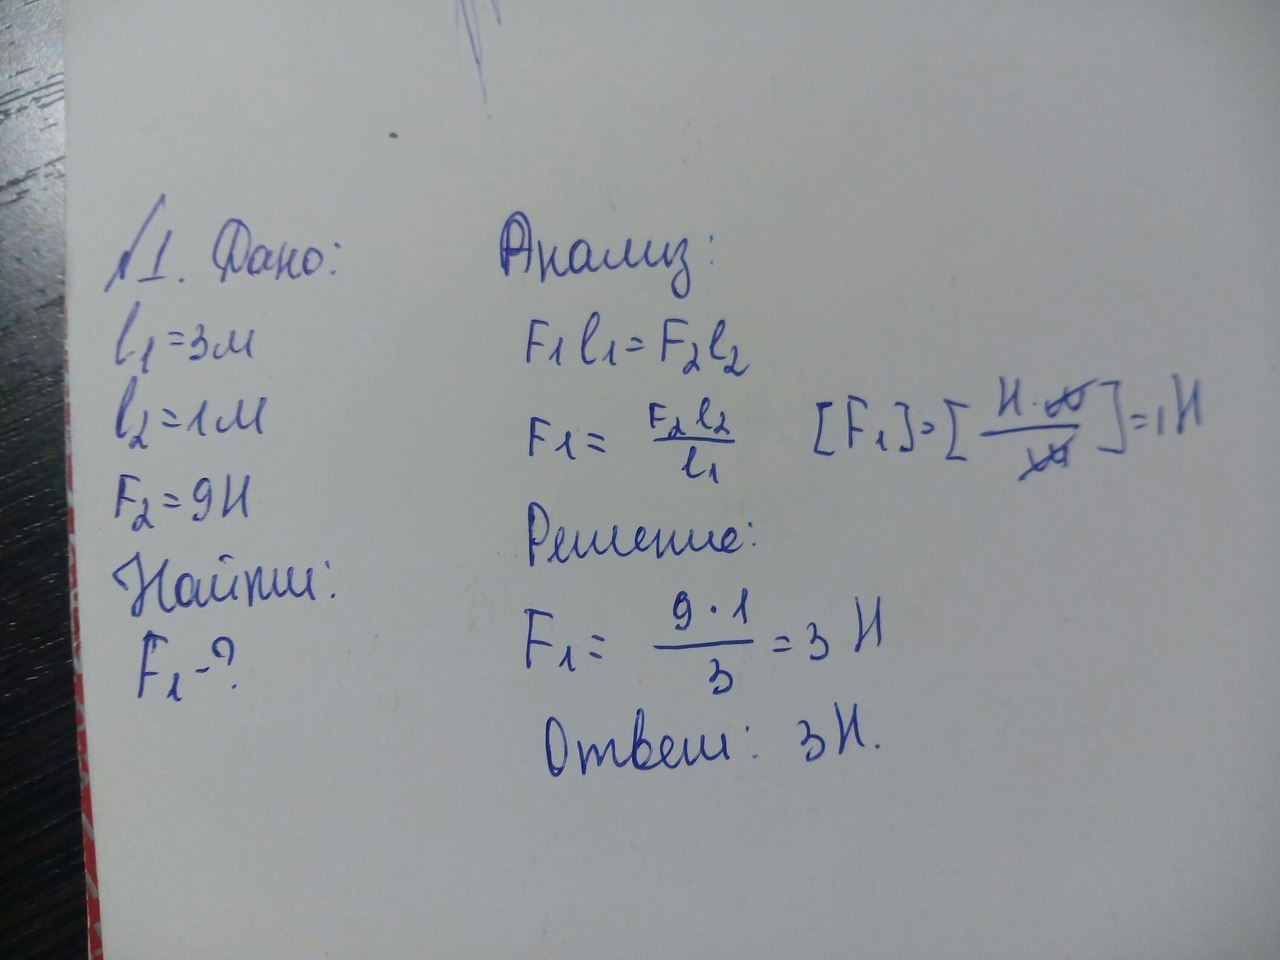 №1. Дано:
l₁=3м
l₂=1м
F₂=9Н
Найти:
F₁-?
Анализ:
F₁l₁=F₂l₂
F₁= F₂l₂/l₁ [F₁]=[Н·м/м]=1Н
Решение:
F₁= 9·1/3 =3 Н
Ответ: 3Н.